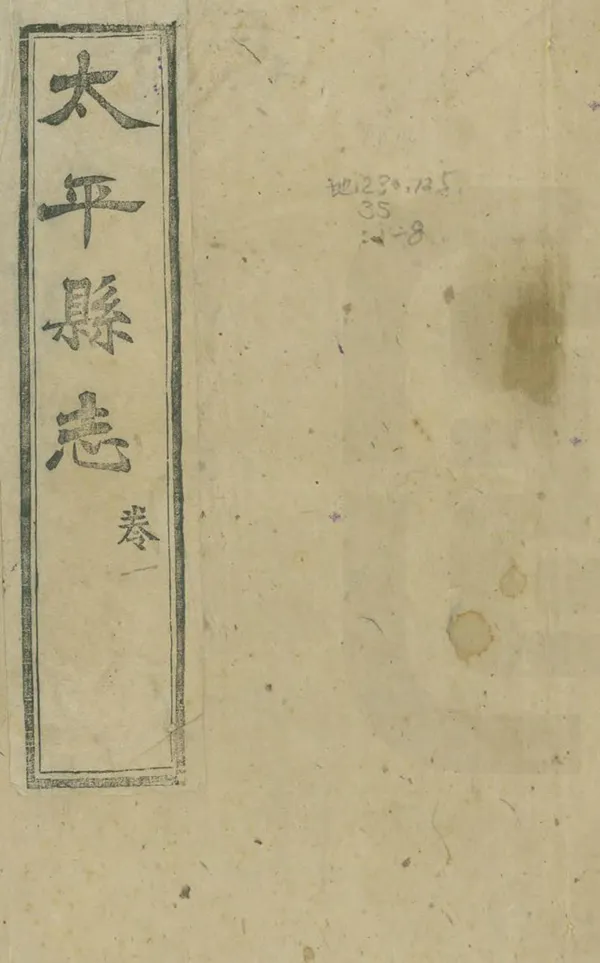 太平縣志
卷一
地230.125
35
:1-8